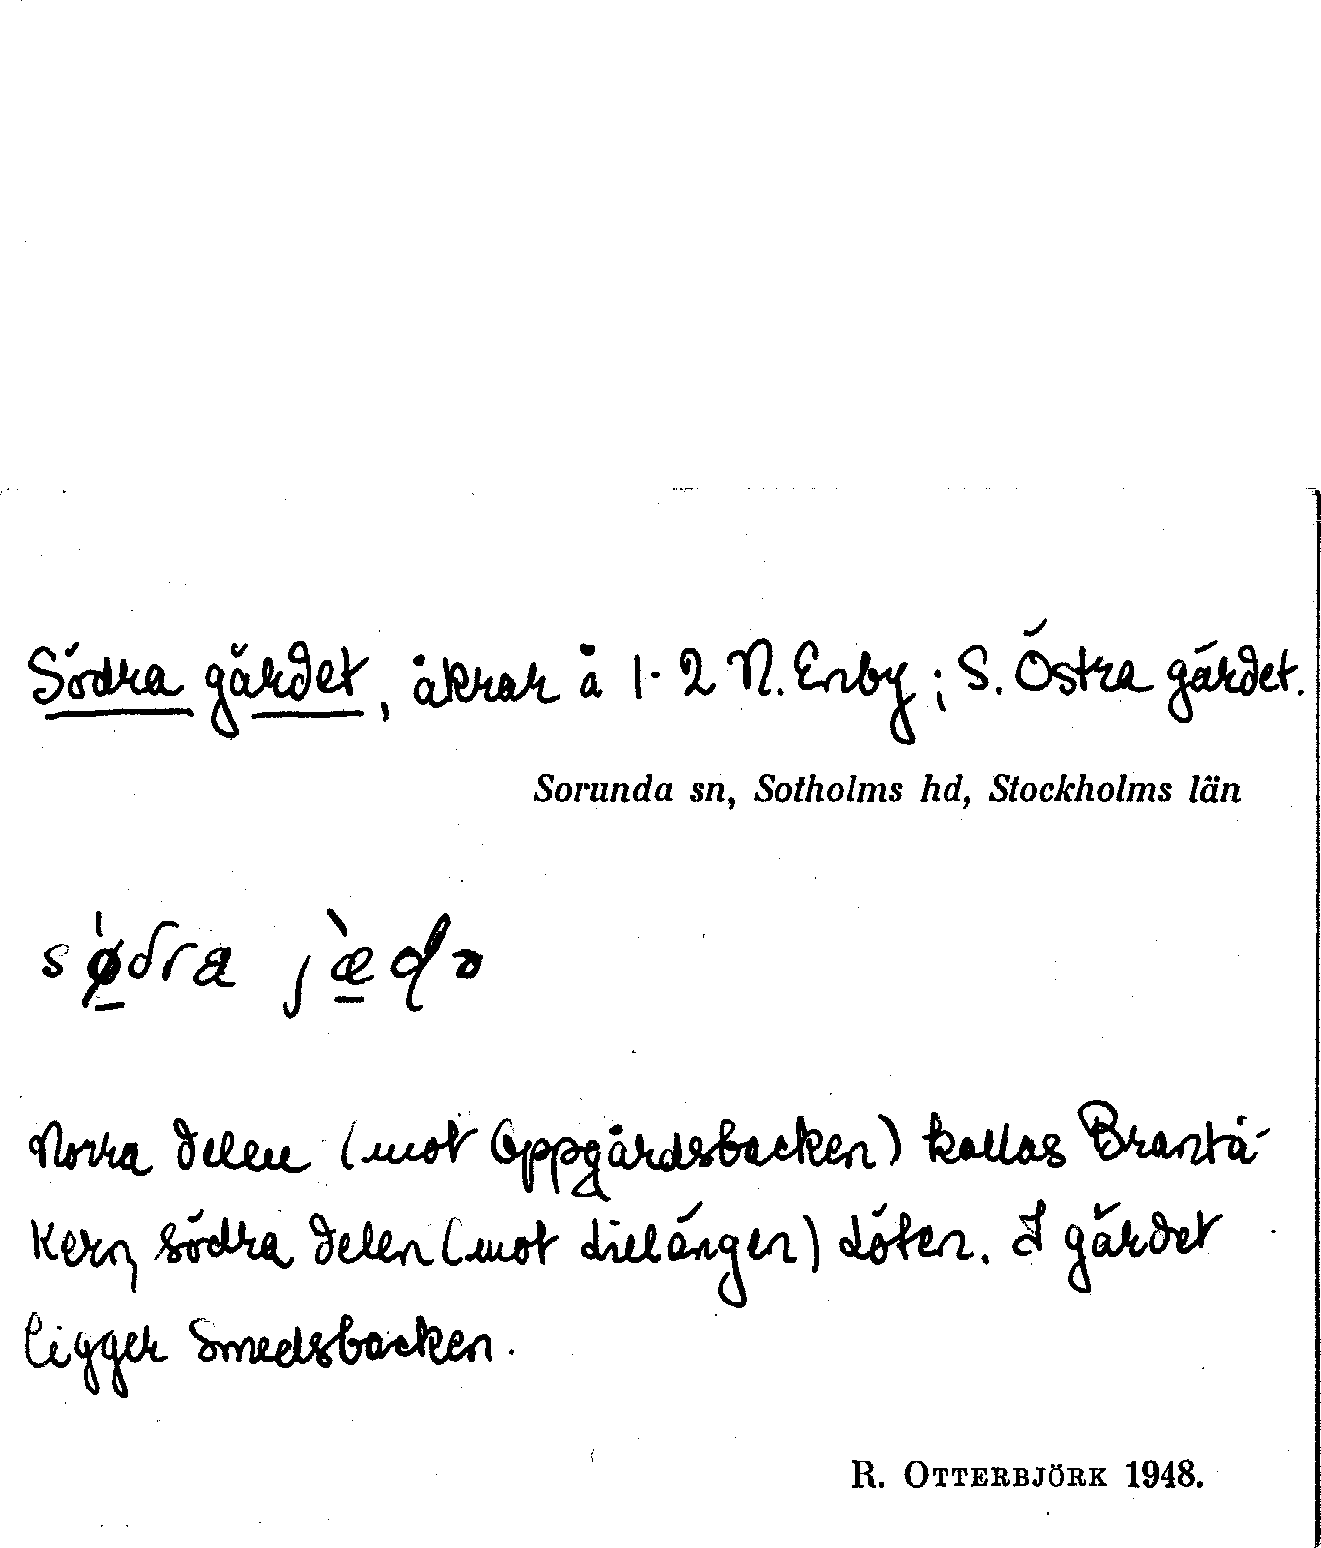 Södra gärdet, åkrar å 1-2 N. Enby; S. Östra gärdet.
Sorunda sn, Sotholms hd, Stockholms län
Norra delen (mot Oppgårdsbacken) kallas Brantå-
kern, södra delen (mot Lillängen) Löten. I gärdet
ligger Smedsbacken.
R. OTTERBJÖRK 1948.